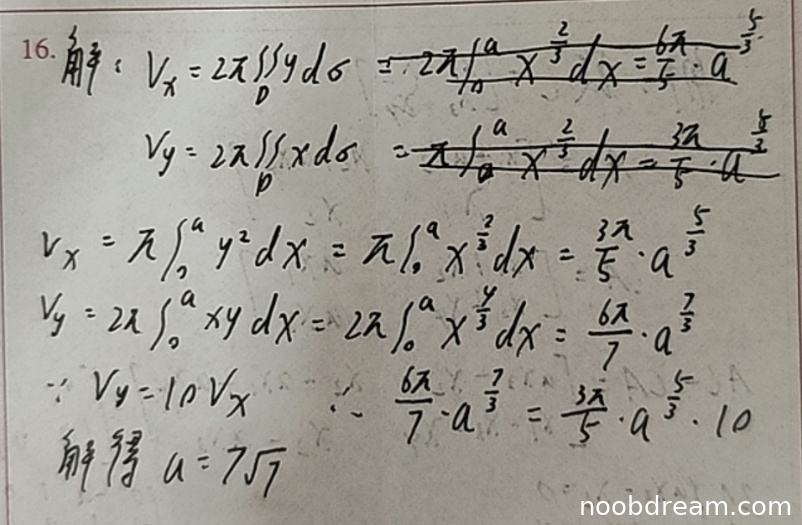 16. 解: Vx = 2π∬_D y dσ = 2π∫_0^a x^{2/3} dx = 6π/5 · a^{5/3}
Vy = 2π∬_D x dσ = π∫_0^a x^{2/3} dx = 3π/5 · a^{5/3}
Vx = π∫_0^a y² dx = π∫_0^a x^{2/3} dx = 3π/5 · a^{5/3}
Vy = 2π∫_0^a xy dx = 2π∫_0^a x^{4/3} dx = 6π/7 · a^{7/3}
∵ Vy = 10Vx ∴ 6π/7 · a^{7/3} = 3π/5 · a^{5/3} · 10
解得 a = 7√7
noobdream.com